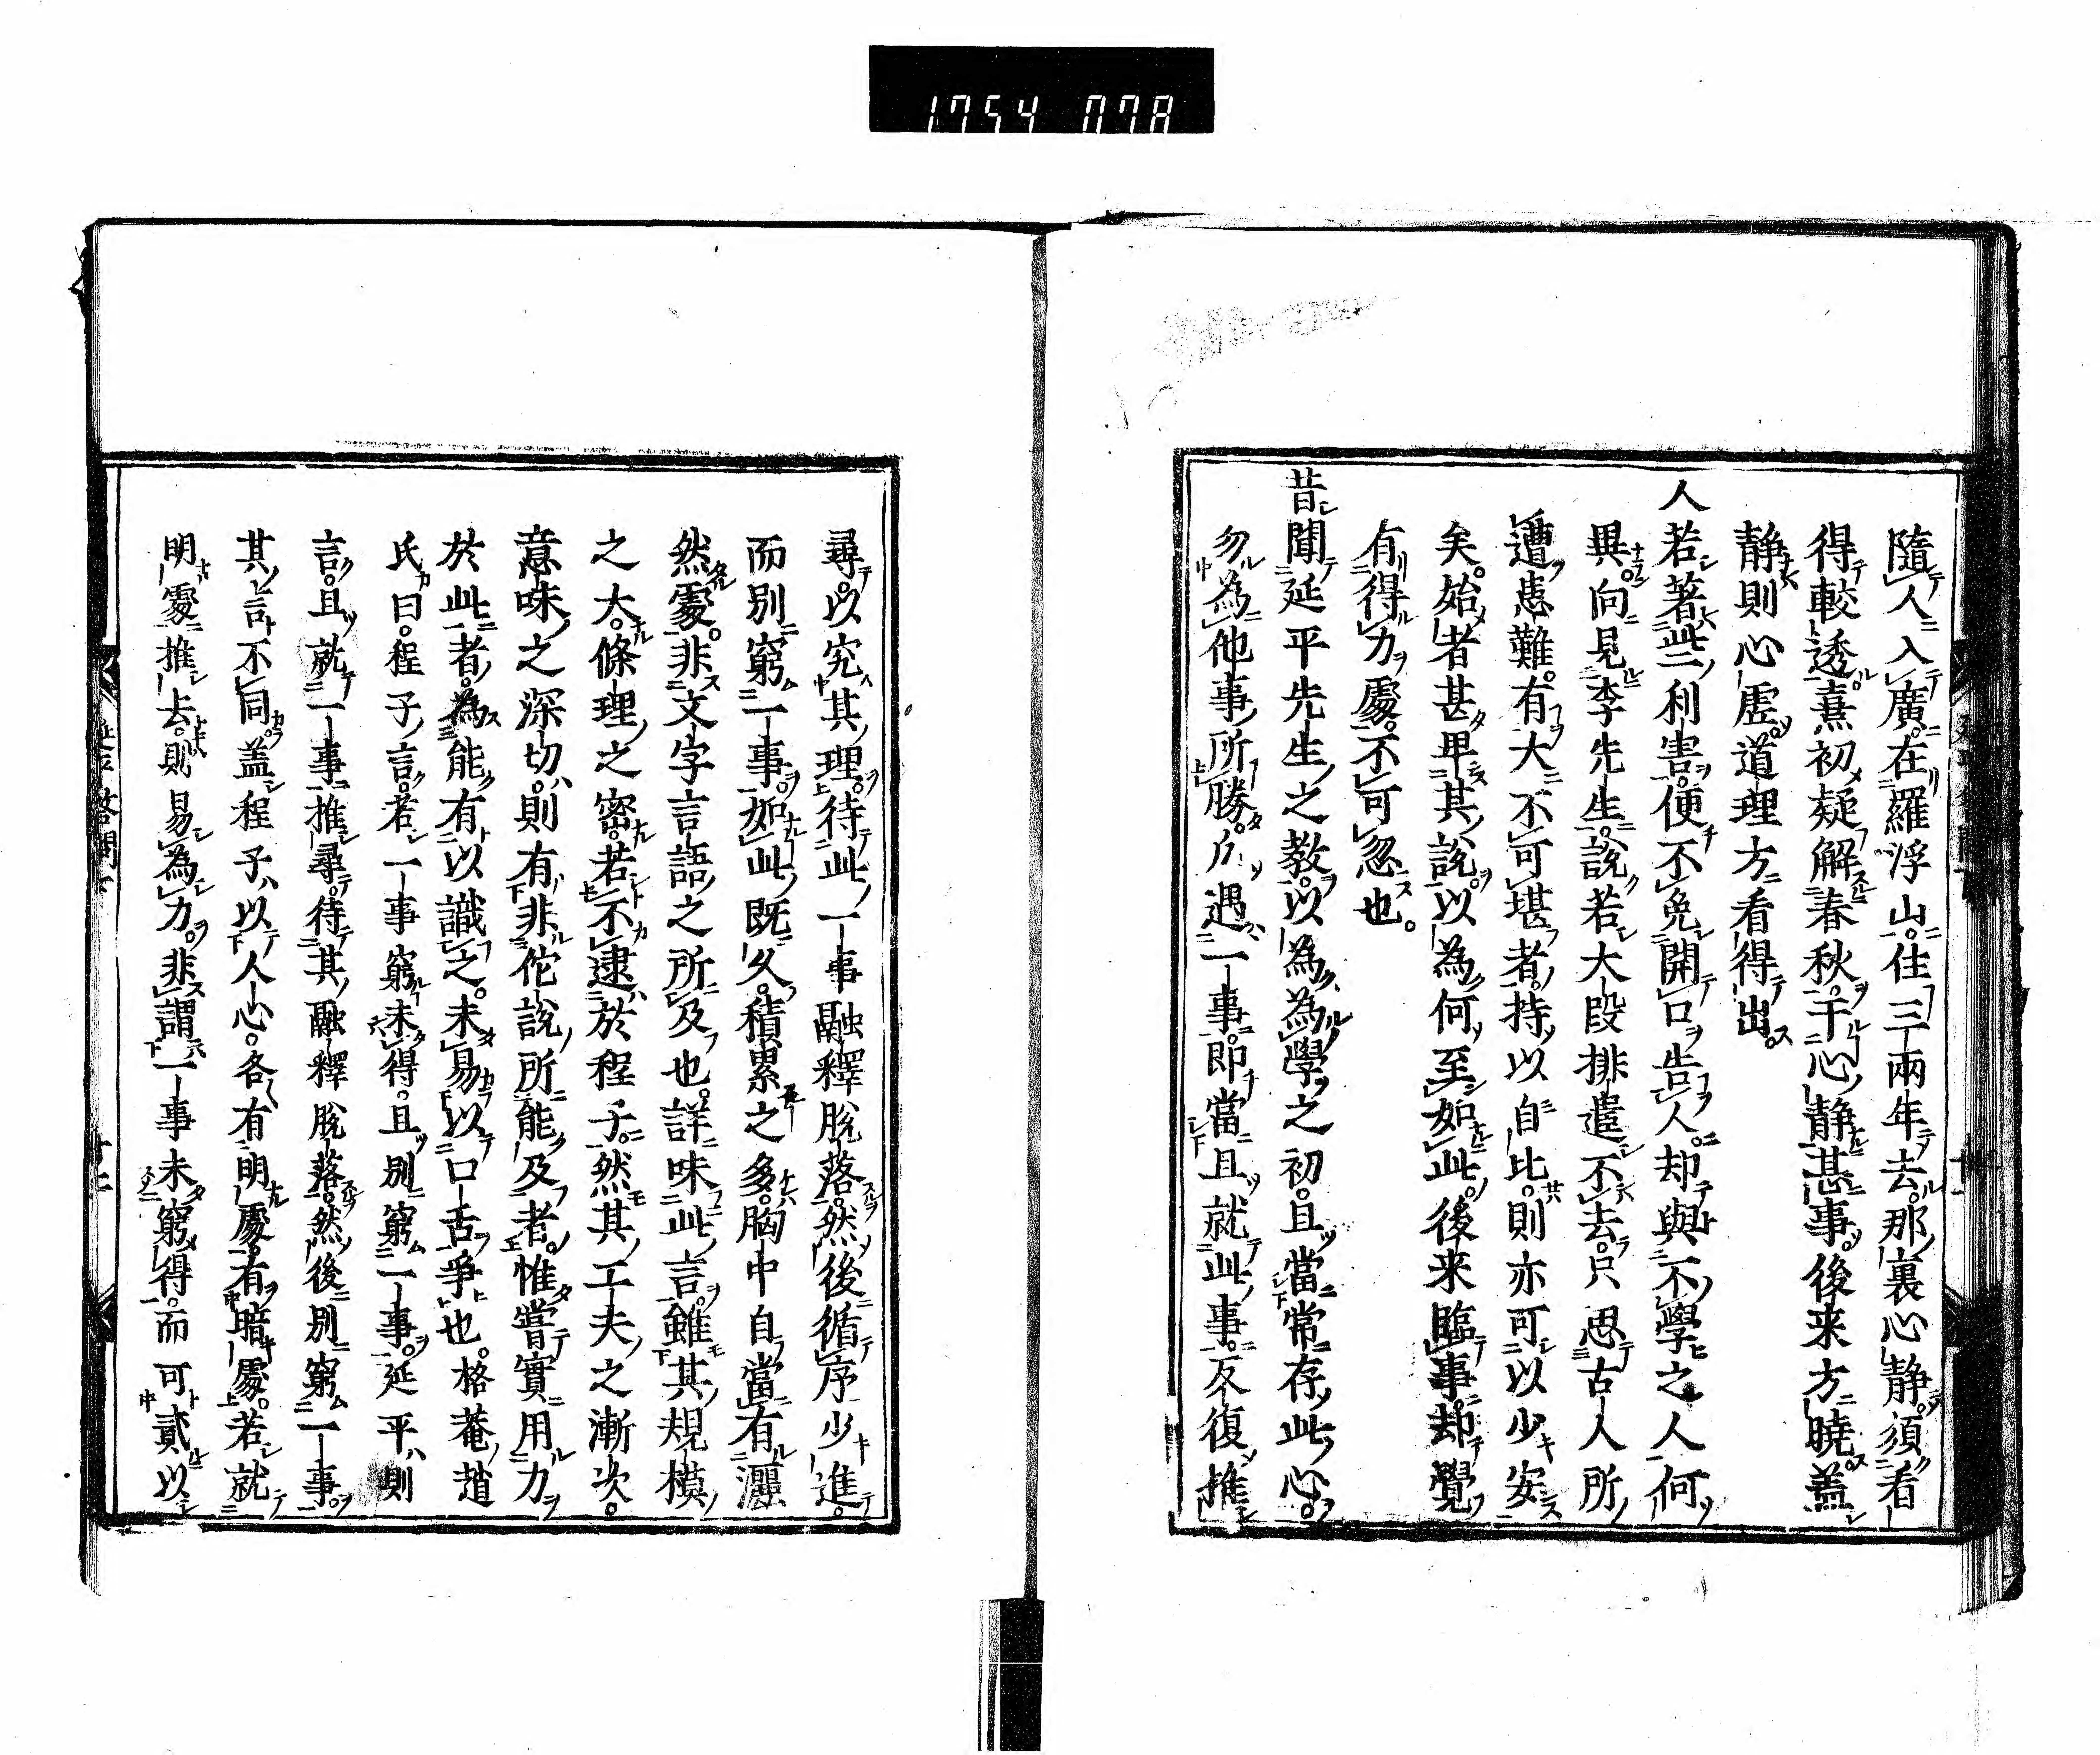 1754 078
隨人入廣。在羅浮山。住三兩年去。那裏心静。須看
得較透。熹初疑解春秋。干心静甚事。後来方曉。盖
静則心虚。道理方看得出。
人若著些利害。便不免開口告人。却與不學之人何
異。向見李先生。說若大段排遣不去。只思古人所
遭患難。有大不可堪者。持以自比。則亦可以少安
矣。始者甚卑其說。以為何至如此。後来臨事。却覺
有得力處。不可忽也。
昔聞延平先生之教。以為為學之初。且當常存此心。
勿為他事所勝。凡遇一事。即當且就此事。反復推
尋。以究其理。待此一事融釋脫落。然後循序少進。
而別窮一事。如此既久。積累之多。胸中自當有灑
然處。非文字言語之所及也。詳味此言。雖其規模
之大。條理之密。若不逮於程子。然其工夫之漸次。
意味之深切。則有非佗說所能及者。惟嘗實用力
於此者。為能有以識之。未易以口舌爭也。格菴趙
氏曰。程子言。若一事窮未得。且別窮一事。延平則
言。且就一事推尋。待其融釋脫落。然後別窮一事。
其言不同。盖程子以人心。各有明處。有暗處。若就
明處推去。則易為力。非謂一事未窮得。而可貳以
延平答問下